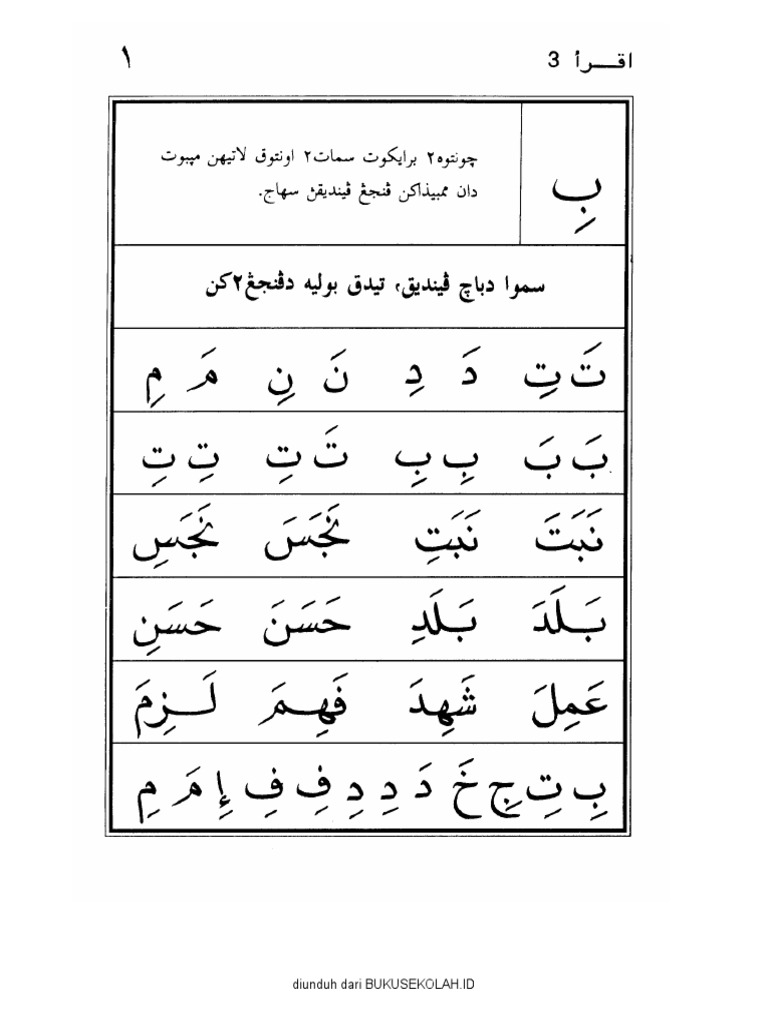 اقـــرأ 3 ١
بِ
چونتوه٢ برايكوت سمات٢ اونتوق لاتيهن مپبوت
دان ممبيذاكن ڤنجڠ ڤينديقڽ سهاج.
سموا دباچ ڤينديق، تيدق بوليه دڤنجڠ٢كن
تَ تِ دَ دِ نَ نِ مَ مِ
بَ بَ بِ بِ تَ تِ تِ تِ
نَبَتَ نَبَتِ نَجَسَ نَجَسِ
بَـلَدَ بَـلَدِ حَسَنَ حَسَنِ
عَمِلَ شَهِدَ فَهِـمَ لَـزِمَ
بِ تِ جِ خَ دَ دِ دِ فِ فِ إِ مَ مِ
diunduh dari BUKUSEKOLAH.ID